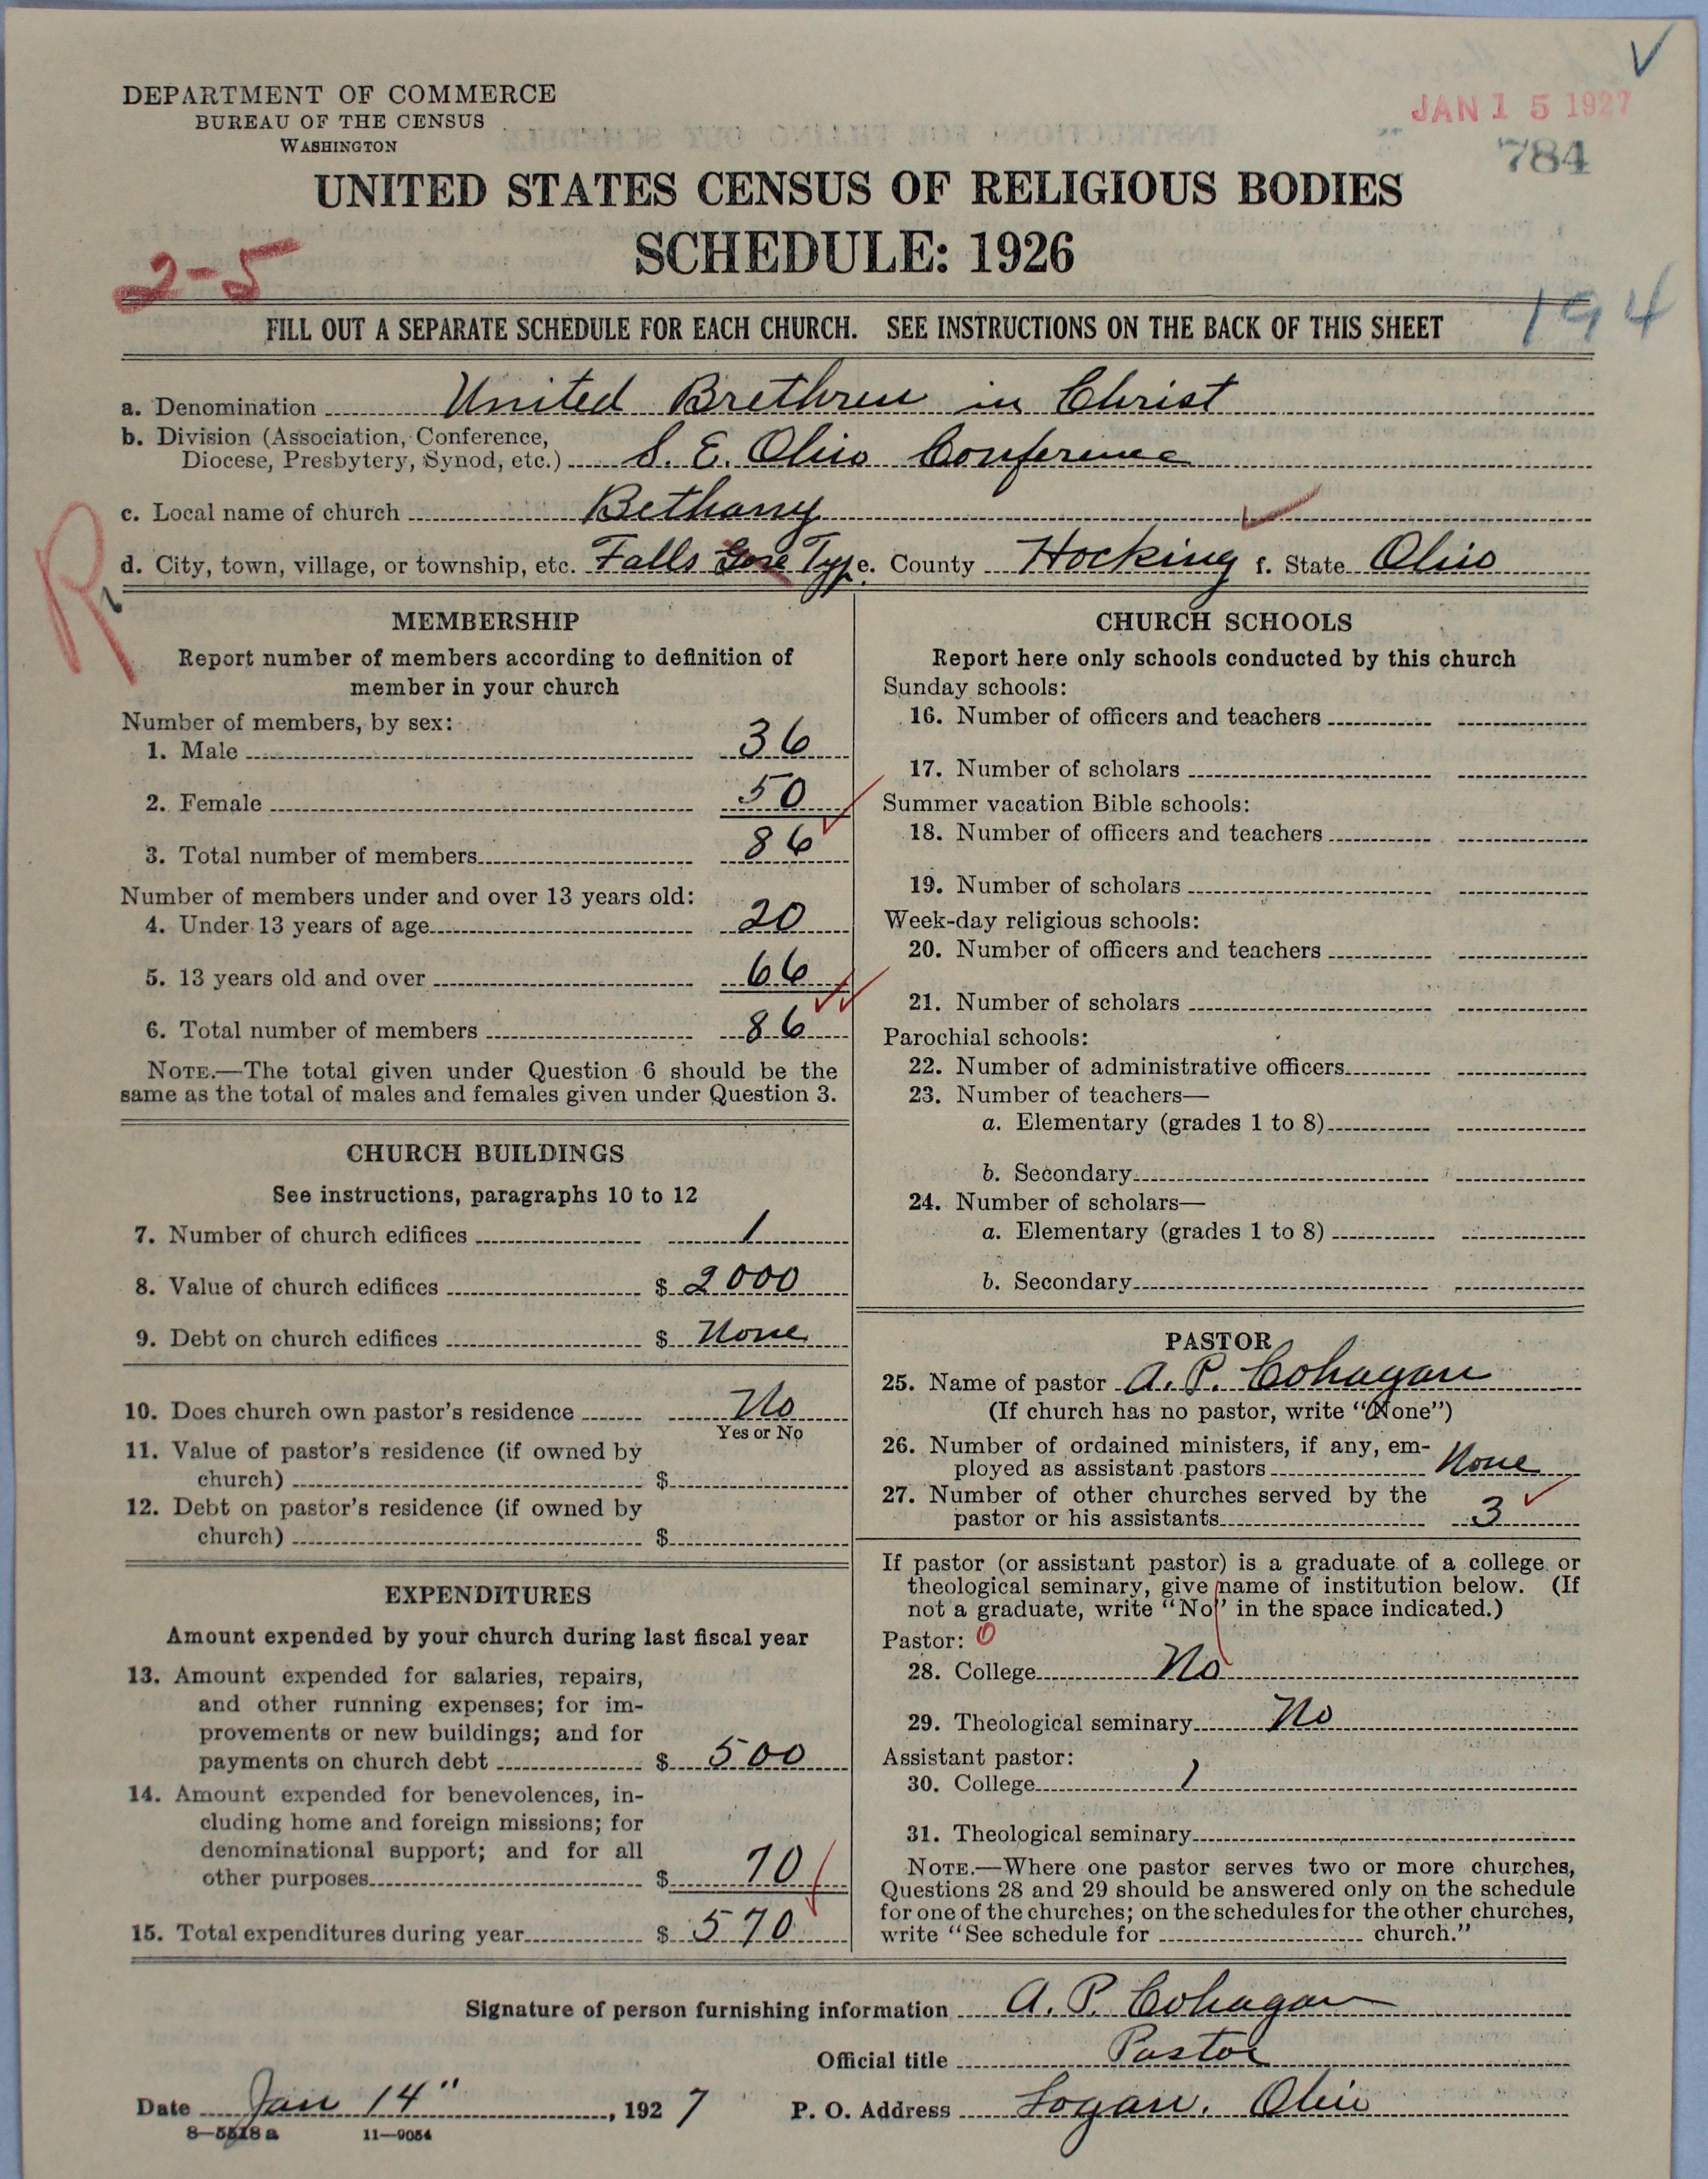 DEPARTMENT OF COMMERCE
BUREAU OF THE CENSUS
WASHINGTON
JAN 15 1927
784
UNITED STATES CENSUS OF RELIGIOUS BODIES
SCHEDULE: 1926
2-5
194
FILL OUT A SEPARATE SCHEDULE FOR EACH CHURCH. SEE INSTRUCTIONS ON THE BACK OF THIS SHEET
a. Denomination United Brethren in Christ
b. Division (Association, Conference,
Diocese, Presbytery, Synod, etc.) S. E. Ohio Conference
c. Local name of church Bethany
R
d. City, town, village, or township, etc. Falls Gore Typ e. County Hocking f. State Ohio
MEMBERSHIP
Report number of members according to definition of
member in your church
Number of members, by sex:
1. Male 36
2. Female 50
3. Total number of members 86
Number of members under and over 13 years old:
4. Under 13 years of age 20
5. 13 years old and over 66
6. Total number of members 86
NOTE.—The total given under Question 6 should be the
same as the total of males and females given under Question 3.
CHURCH BUILDINGS
See instructions, paragraphs 10 to 12
7. Number of church edifices 1
8. Value of church edifices $ 2000
9. Debt on church edifices $ None
10. Does church own pastor's residence No
Yes or No
11. Value of pastor's residence (if owned by
church) $
12. Debt on pastor's residence (if owned by
church) $
EXPENDITURES
Amount expended by your church during last fiscal year
13. Amount expended for salaries, repairs,
and other running expenses; for im-
provements or new buildings; and for
payments on church debt $ 500
14. Amount expended for benevolences, in-
cluding home and foreign missions; for
denominational support; and for all
other purposes $ 70
15. Total expenditures during year $ 570
CHURCH SCHOOLS
Report here only schools conducted by this church
Sunday schools:
16. Number of officers and teachers
17. Number of scholars
Summer vacation Bible schools:
18. Number of officers and teachers
19. Number of scholars
Week-day religious schools:
20. Number of officers and teachers
21. Number of scholars
Parochial schools:
22. Number of administrative officers
23. Number of teachers—
a. Elementary (grades 1 to 8)
b. Secondary
24. Number of scholars—
a. Elementary (grades 1 to 8)
b. Secondary
PASTOR
25. Name of pastor A. P. Cohagan
(If church has no pastor, write "None")
26. Number of ordained ministers, if any, em-
ployed as assistant pastors None
27. Number of other churches served by the
pastor or his assistants 3
If pastor (or assistant pastor) is a graduate of a college or
theological seminary, give name of institution below. (If
not a graduate, write "No" in the space indicated.)
Pastor: 0
28. College No
29. Theological seminary No
Assistant pastor:
30. College 1
31. Theological seminary
NOTE.—Where one pastor serves two or more churches,
Questions 28 and 29 should be answered only on the schedule
for one of the churches; on the schedules for the other churches,
write "See schedule for church."
Signature of person furnishing information A. P. Cohagan
Official title Pastor
Date Jan 14", 1927 P. O. Address Logan, Ohio
8—5518a 11—9054